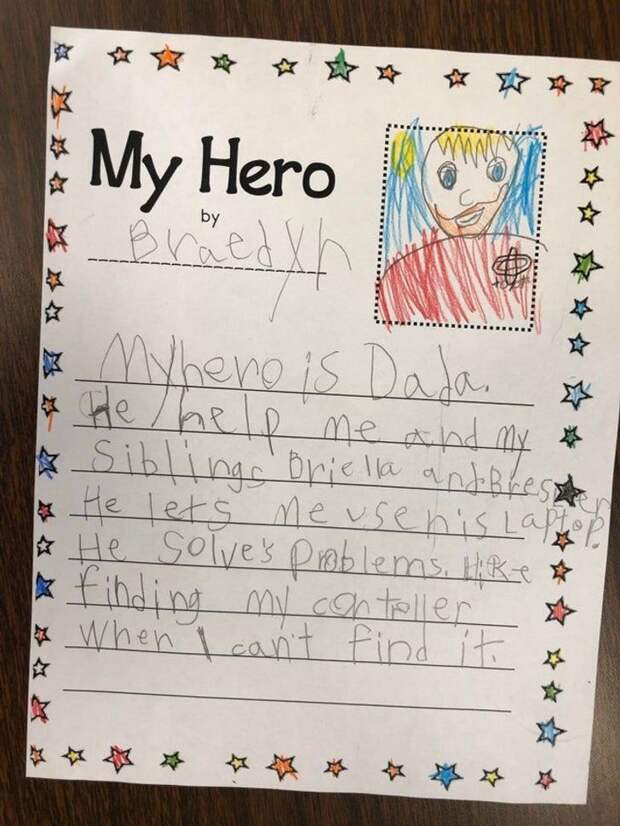 My Hero
by
Braedyn
My hero is Dada.
He help me and my
Siblings Briella and
He lets me use his Laptop.
He Solve's Problems. like
finding my contoller
When I can't find it.